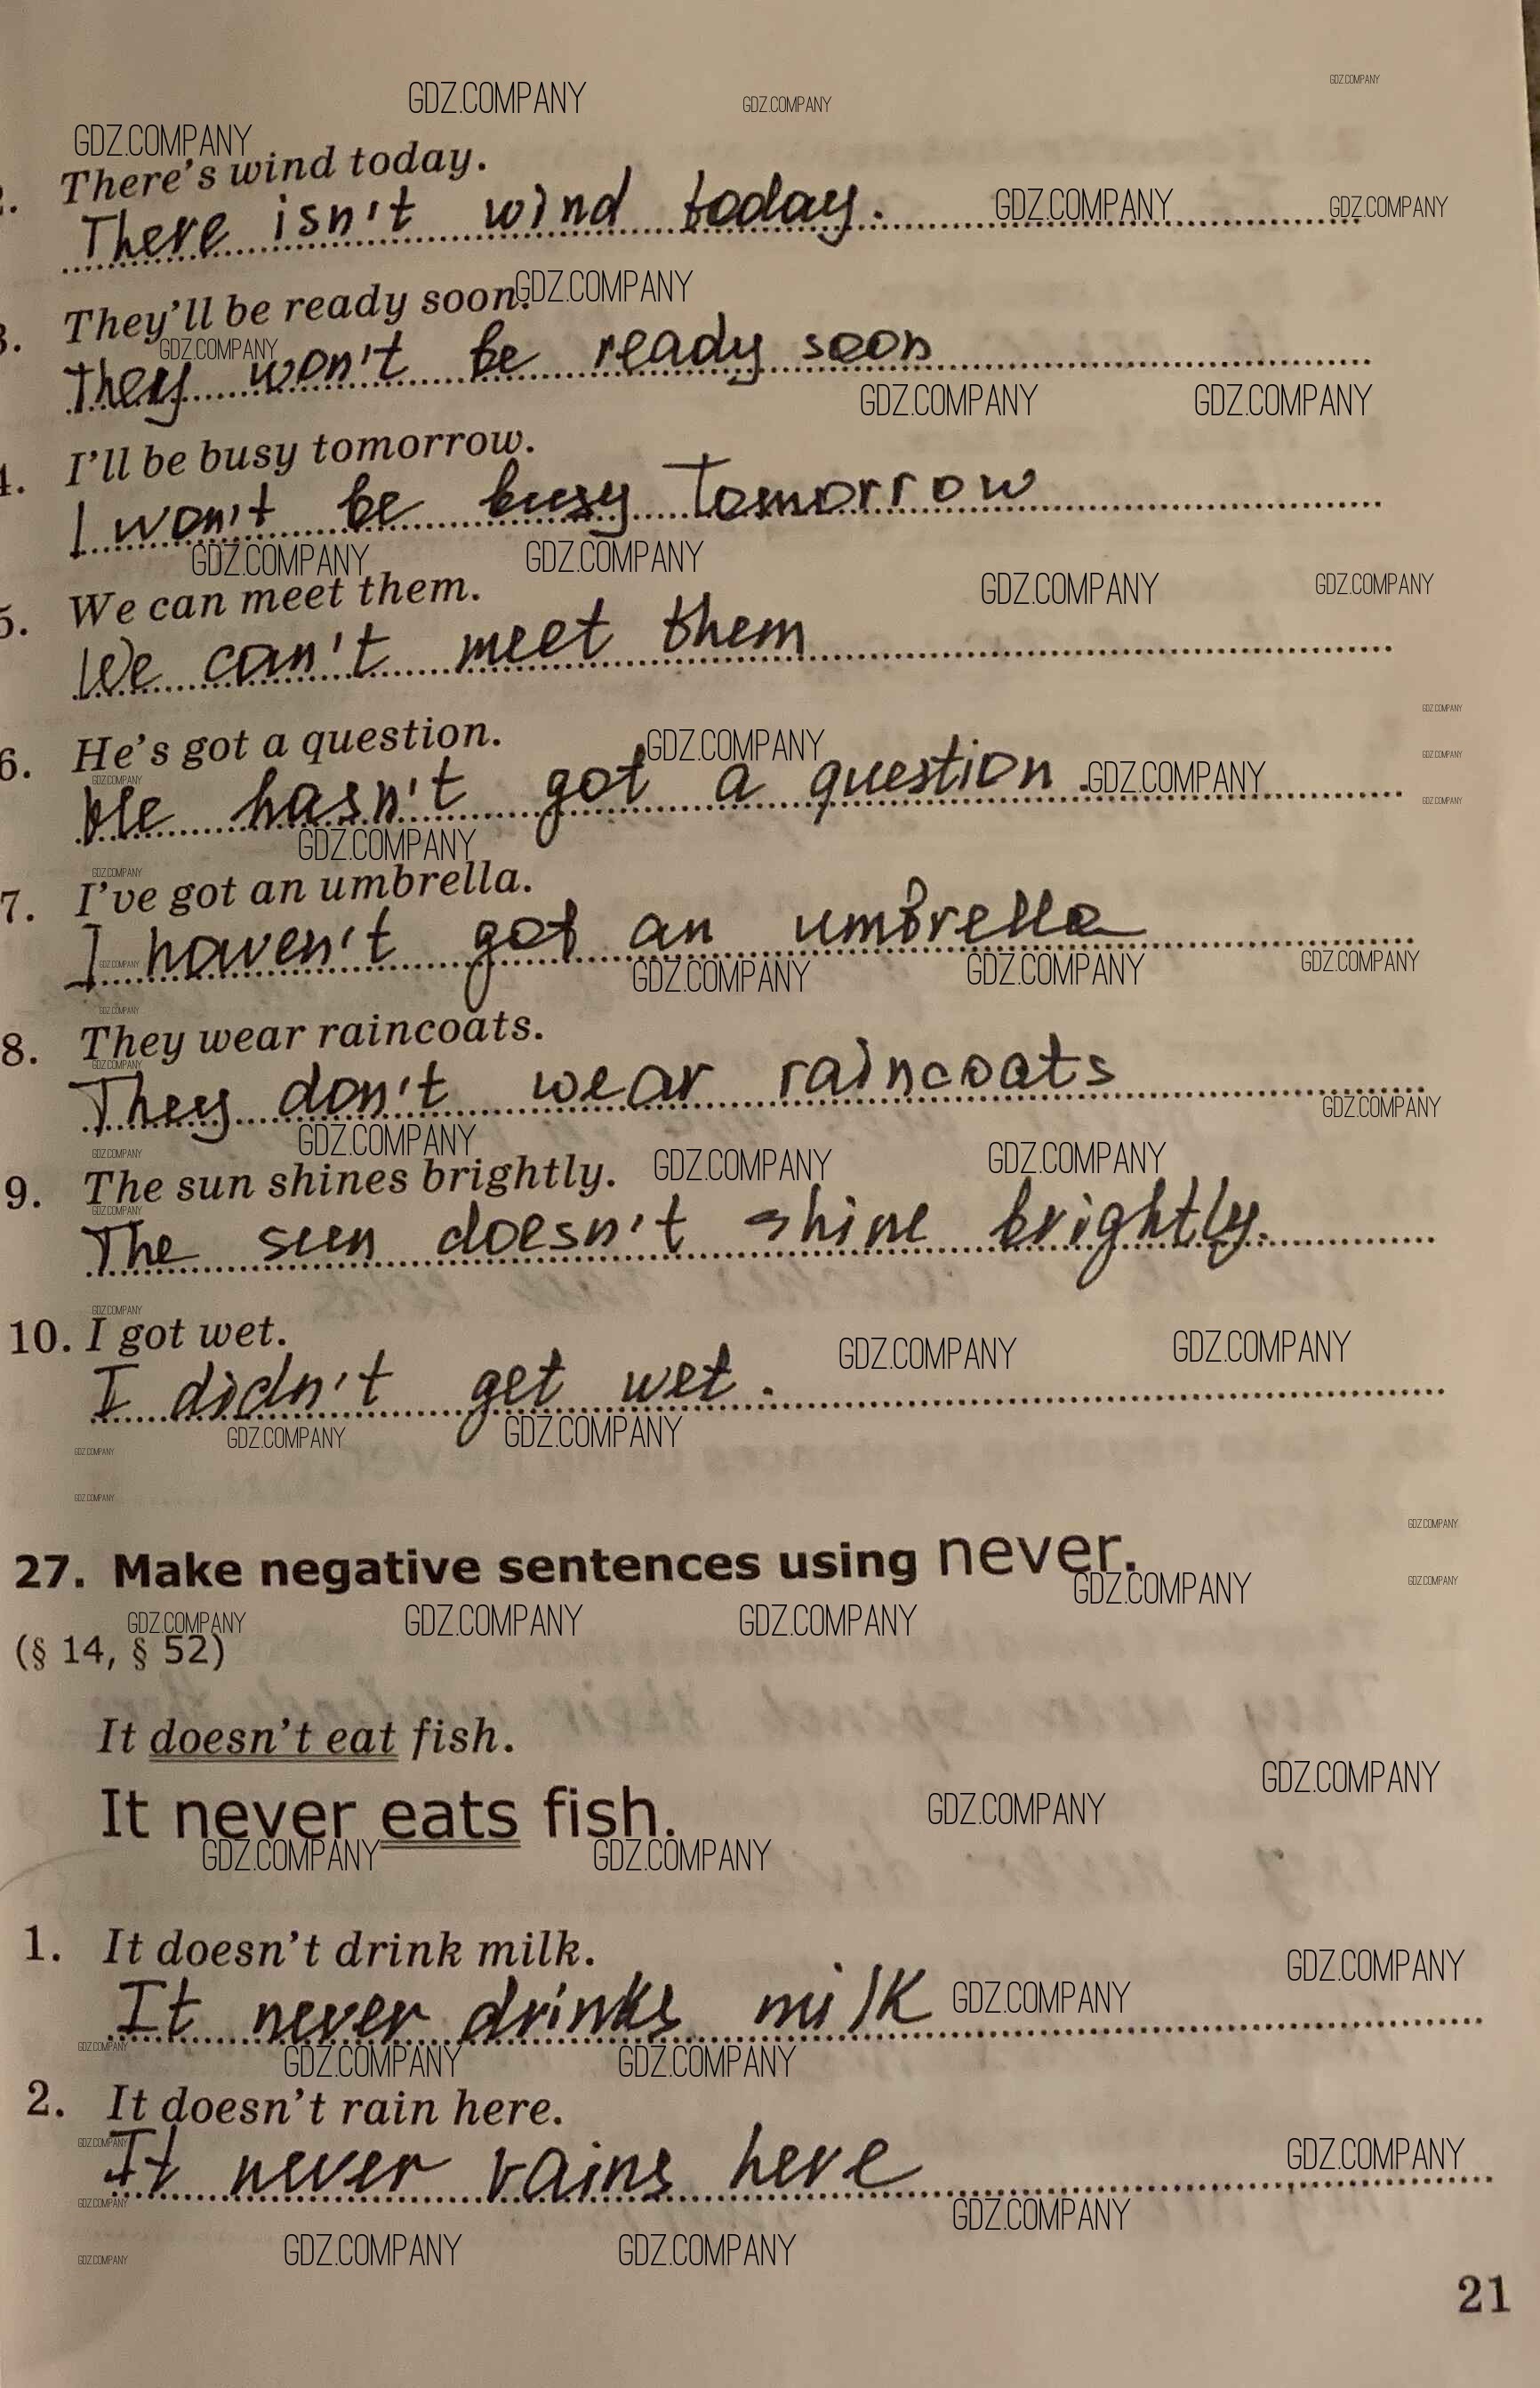 GDZ.COMPANY
GDZ.COMPANY GDZ.COMPANY
GDZ.COMPANY
There's wind today.
There isn't wind today. GDZ.COMPANY GDZ.COMPANY
3. They'll be ready soon. GDZ.COMPANY
GDZ.COMPANY
They won't be ready soon
GDZ.COMPANY GDZ.COMPANY
4. I'll be busy tomorrow.
I won't be busy tomorrow
GDZ.COMPANY GDZ.COMPANY
5. We can meet them. GDZ.COMPANY GDZ.COMPANY
We can't meet them
GDZ.COMPANY
6. He's got a question. GDZ.COMPANY GDZ.COMPANY
GDZ.COMPANY
He hasn't got a question. GDZ.COMPANY GDZ.COMPANY
GDZ.COMPANY
GDZ.COMPANY
7. I've got an umbrella.
I haven't got an umbrella
GDZ.COMPANY GDZ.COMPANY GDZ.COMPANY GDZ.COMPANY
GDZ.COMPANY
8. They wear raincoats.
GDZ.COMPANY
They don't wear raincoats
GDZ.COMPANY
GDZ.COMPANY GDZ.COMPANY
9. The sun shines brightly. GDZ.COMPANY GDZ.COMPANY
GDZ.COMPANY
The sun doesn't shine brightly.
GDZ.COMPANY
10. I got wet. GDZ.COMPANY GDZ.COMPANY
I didn't get wet.
GDZ.COMPANY GDZ.COMPANY GDZ.COMPANY
GDZ.COMPANY
GDZ.COMPANY
27. Make negative sentences using never.
GDZ.COMPANY GDZ.COMPANY
GDZ.COMPANY GDZ.COMPANY GDZ.COMPANY
(§ 14, § 52)
It doesn't eat fish.
GDZ.COMPANY
It never eats fish. GDZ.COMPANY
GDZ.COMPANY GDZ.COMPANY
1. It doesn't drink milk. GDZ.COMPANY
It never drinks milk GDZ.COMPANY
GDZ.COMPANY GDZ.COMPANY GDZ.COMPANY
2. It doesn't rain here.
GDZ.COMPANY GDZ.COMPANY
It never rains here
GDZ.COMPANY GDZ.COMPANY
GDZ.COMPANY GDZ.COMPANY GDZ.COMPANY
21